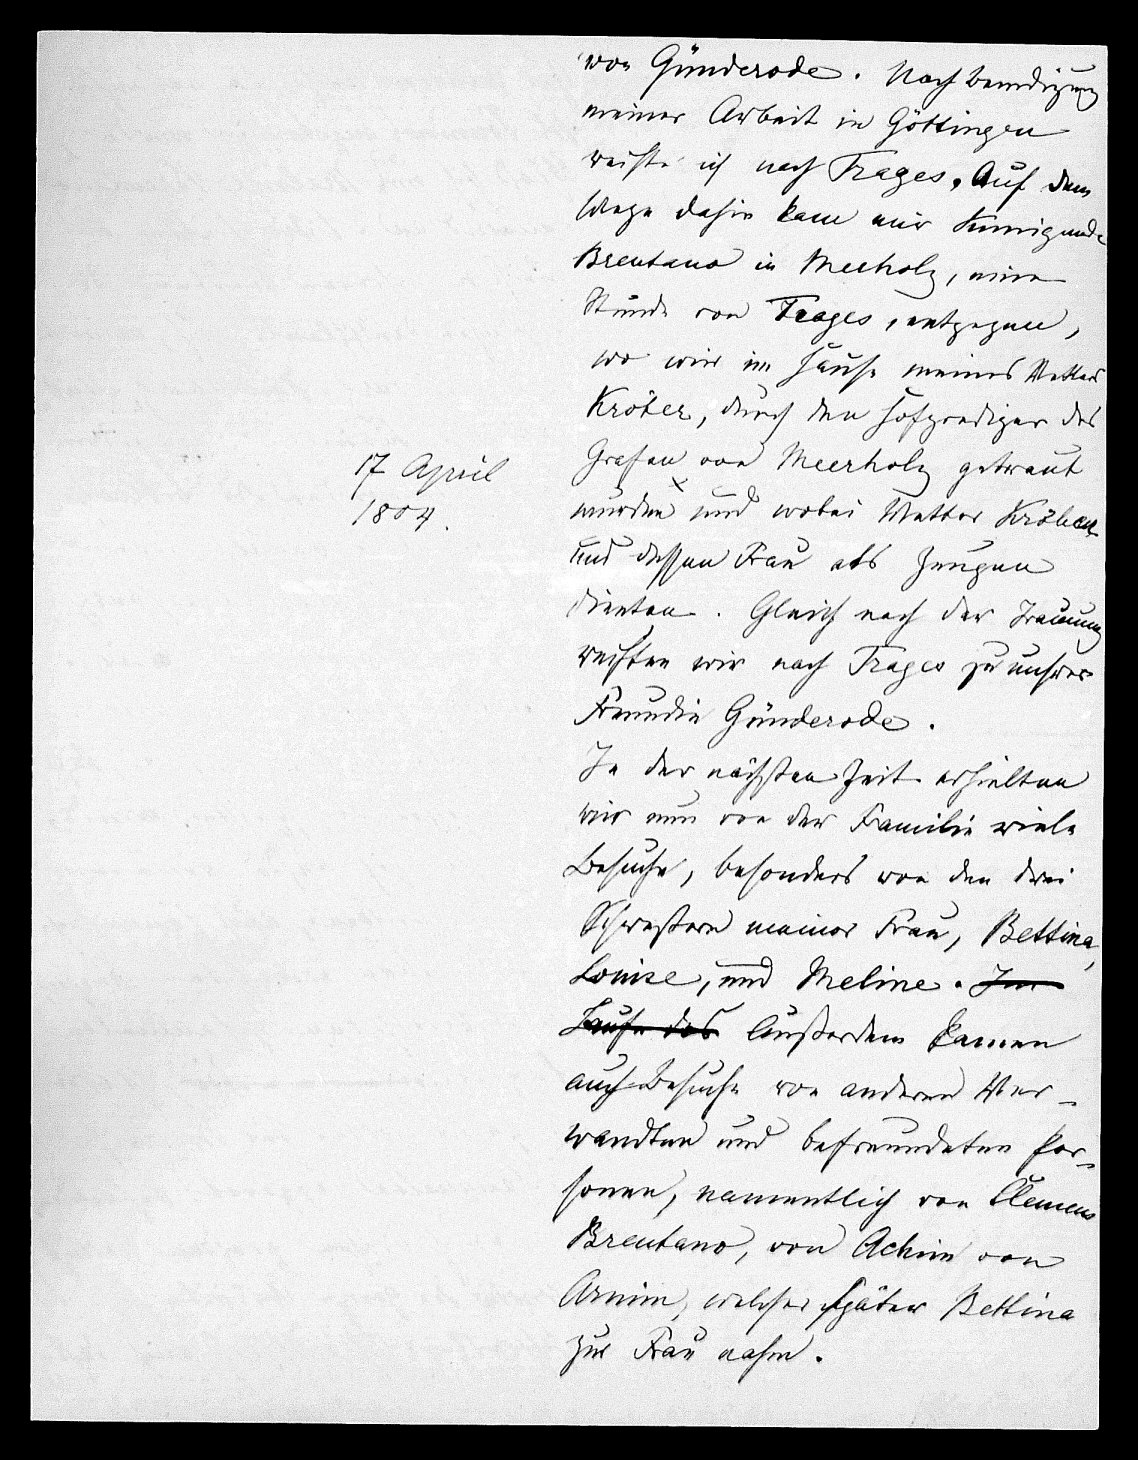 von Günderode. Nach Beendigung
meiner Arbeit in Göttingen
reiste ich nach Trages. Auf dem
Wege dahin kam mir Kunigunde
Brentano in Meerholz, eine
Stunde von Trages, entgegen,
wo wir im Hause meines Vetters
Kröber, durch den Hofprediger des
Grafen von Meerholz getraut
17 April
1804.
wurden x und wobei Vetter Kröber
und dessen Frau als Zeugen
dienten. Gleich nach der Trauung
reisten wir nach Trages zu unsrer
Freundin Günderode.
In der nächsten Zeit erhielten
wir nun von der Familie viele
Besuche, besonders von den drei
Schwestern meiner Frau, Bettina,
Louise, und Meline. Im
Laufe des Außerdem kamen
auch Besuche von anderen Ver-
wandten und befreundeten Per-
sonen, namentlich von Clemens
Brentano, von Achim von
Arnim, welcher später Bettina
zur Frau nahm.